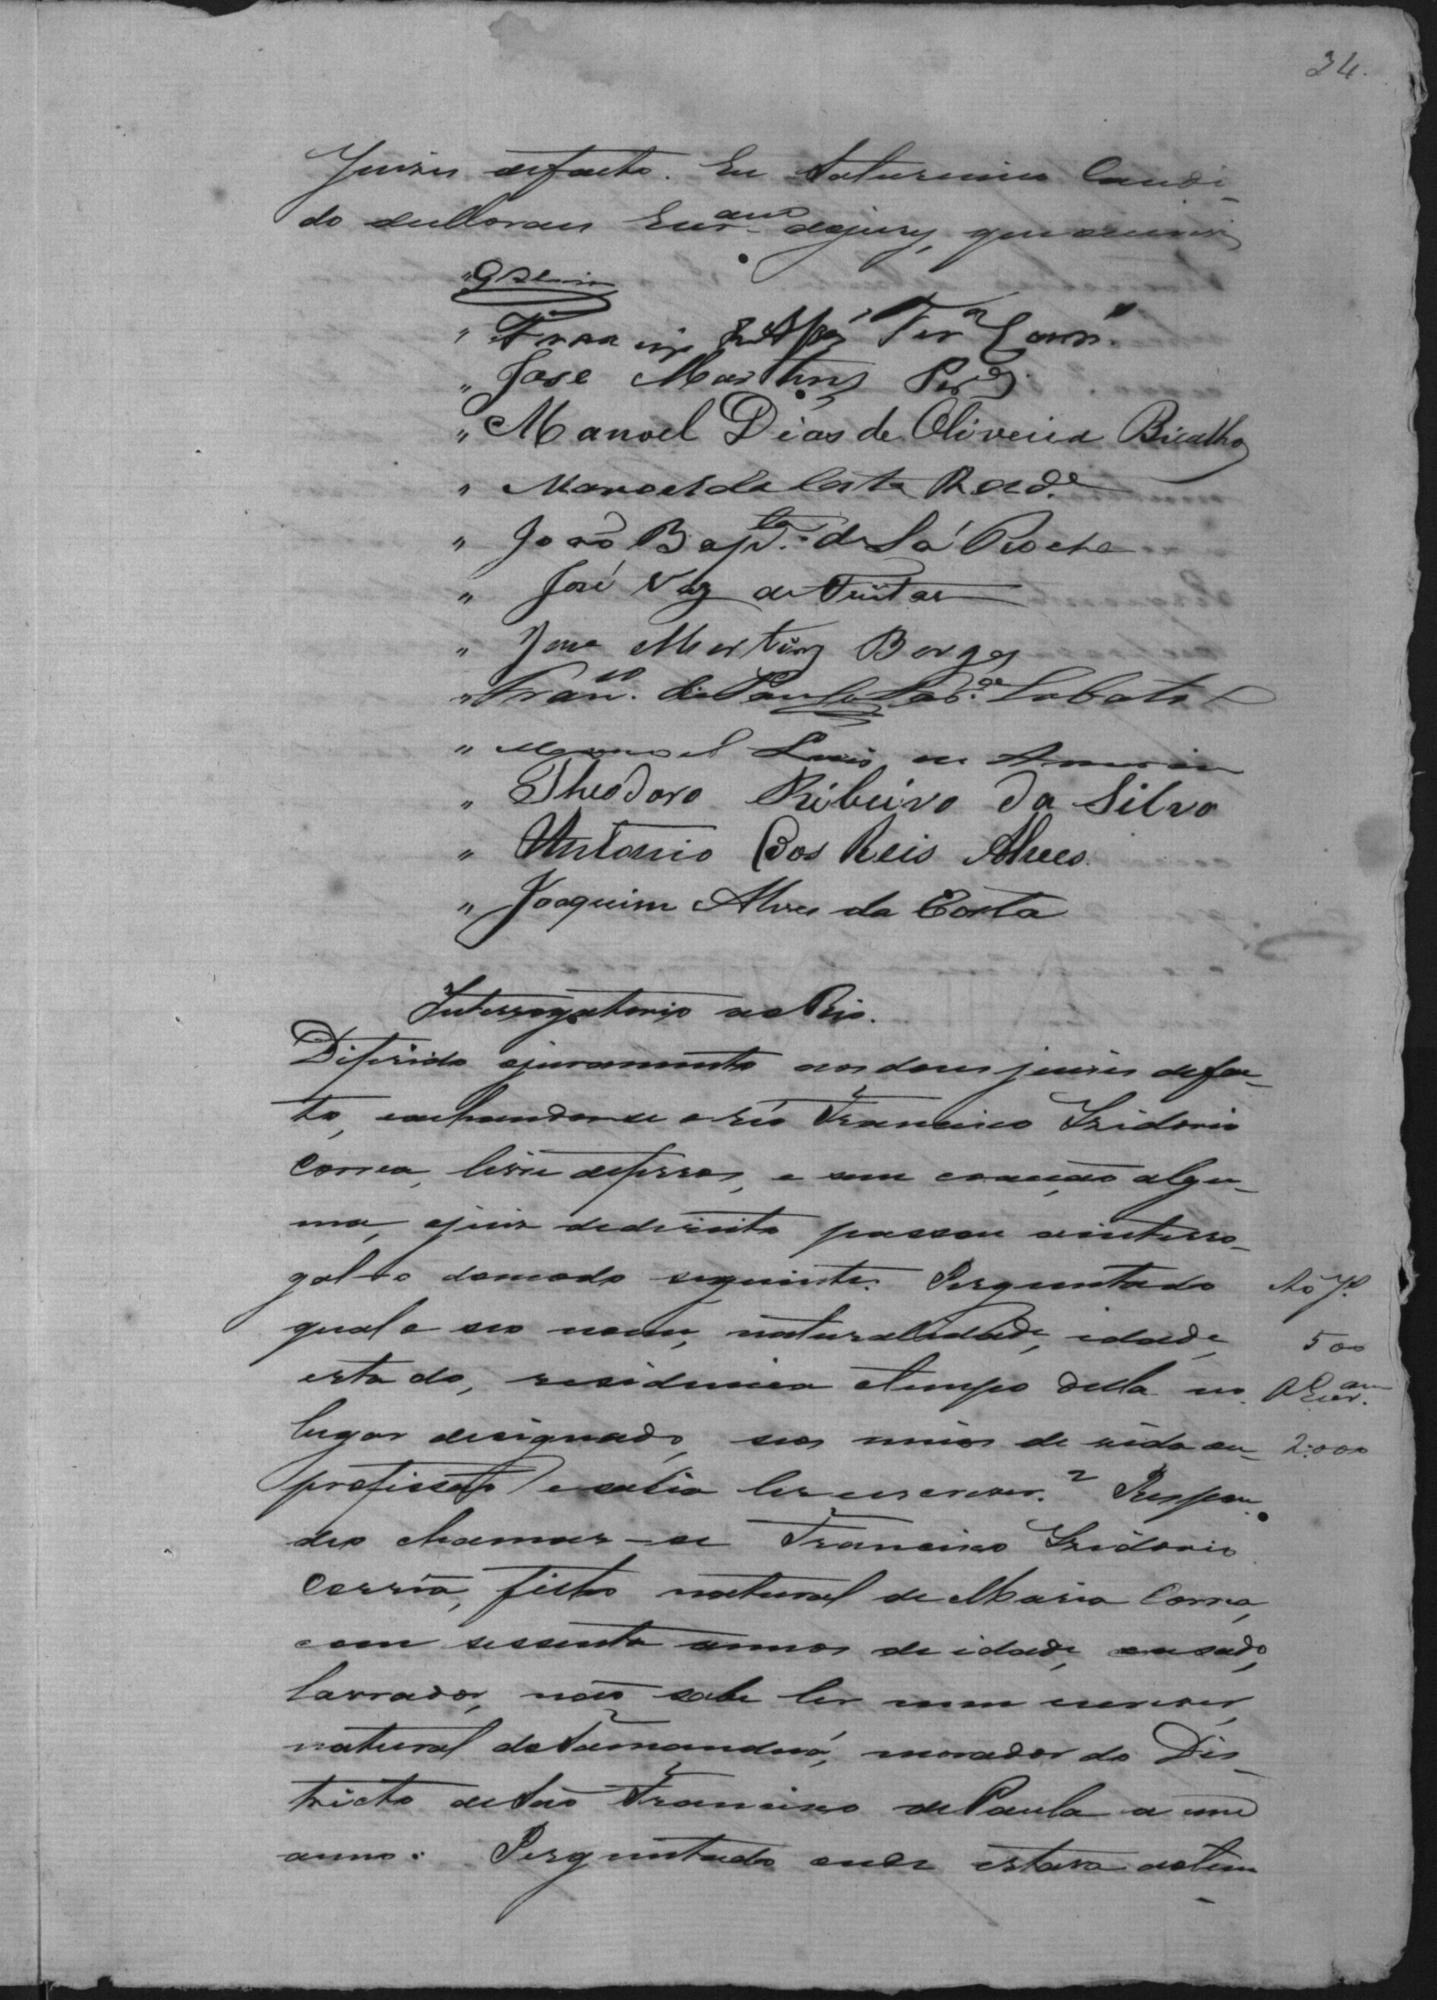 34.
Juizes de facto. Eu Saturnino Candi-
do de Moraes Escr.am do jury, que escrevi
"
" Francisco
" Jose Martins Per.a
" Manoel Dias de Oliveira Bicalho
" Manoel da Costa Resd.e
" João Bap.ta de Sá Rocha
" José Vaz de Freitas
" Jose Martins Borges
" Fran.co de Paula Lobato
" Manoel Luis de Amorim
" Theodoro Ribeiro da Silva
" Antonio dos Reis Alves
" Joaquim Alves da Costa
Interrogatorio ao Reo.
Diferido o juramento aos doze juizes de fac-
to, e achando-se o réo Francisco Izidorio
Correa, livre de ferros, e sem coacção algu-
ma, o juiz de direito passou a interro-
gal-o do modo seguinte. Perguntado
qual o seo nome, naturalidade, idade,
estado, residencia e tempo della no
lugar designado, seos meios de vida ou
profissão e sabia ler e escrever? Respon-
deo chamar-se Francisco Izidorio
Corrêa, filho natural de Maria Correa,
com sessenta annos de idade, casado,
lavrador, não sabe ler nem escrever,
natural de Tamanduá, morador do Dis-
tricto de São Francisco de Paula a um
anno. Perguntado onde estava ao tem-
Ao J.
500
Ao Escr.am
2:000